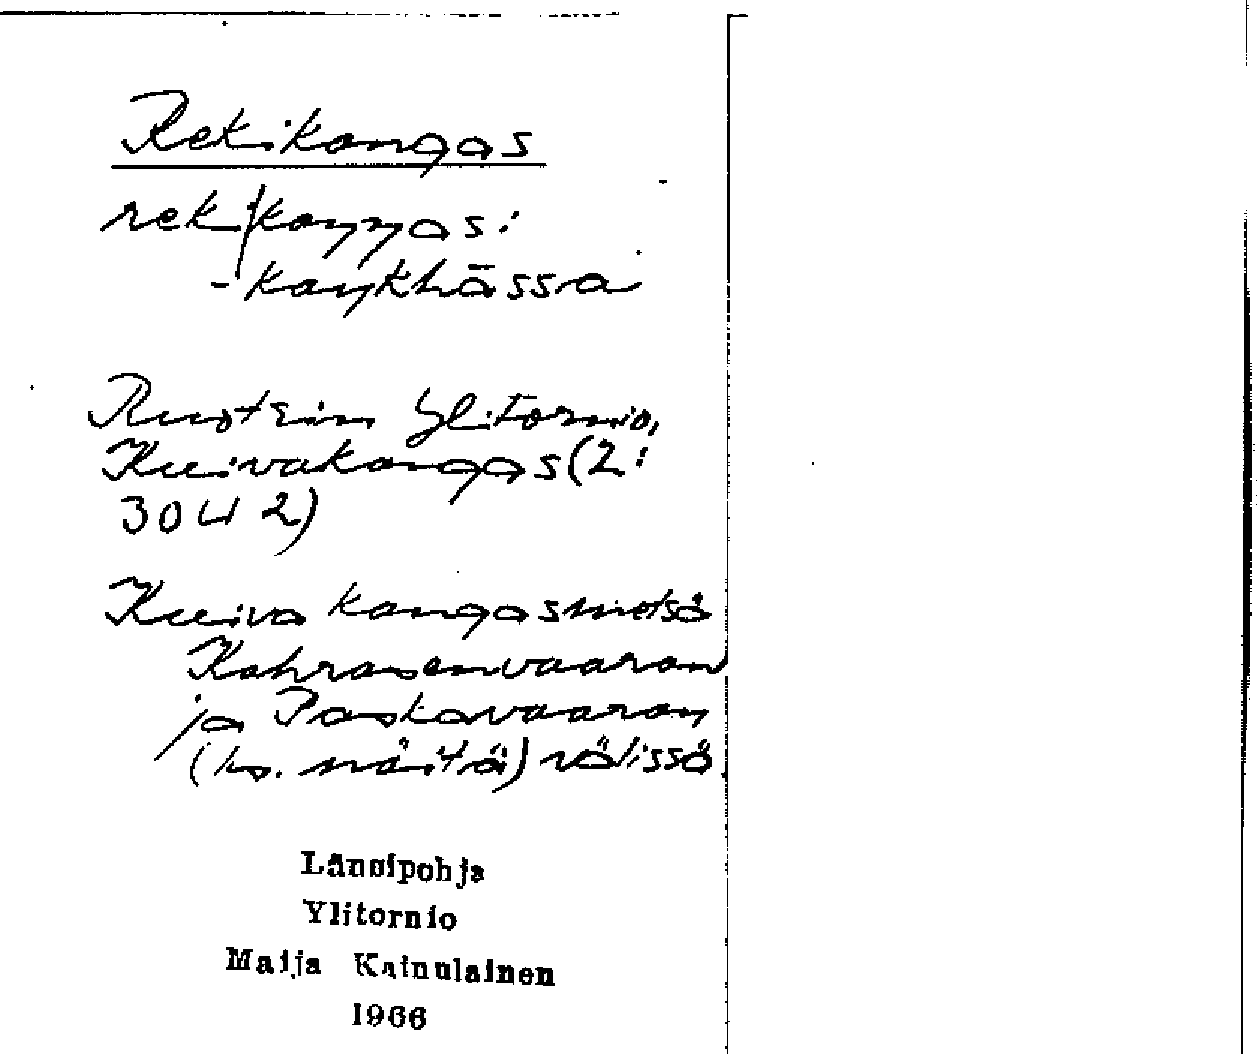 Rekikangas
rek|kaŋŋas:
-kaŋkhāssa
Ruotsin Ylitornio,
Kuivakangas (2:
3042)
Kuiva kangasmetsä
Kahrasenvaaran
ja Paskavaaran
(ks. näitä) välissä
Länsipohja
Ylitornio
Maija Kainulainen
1966